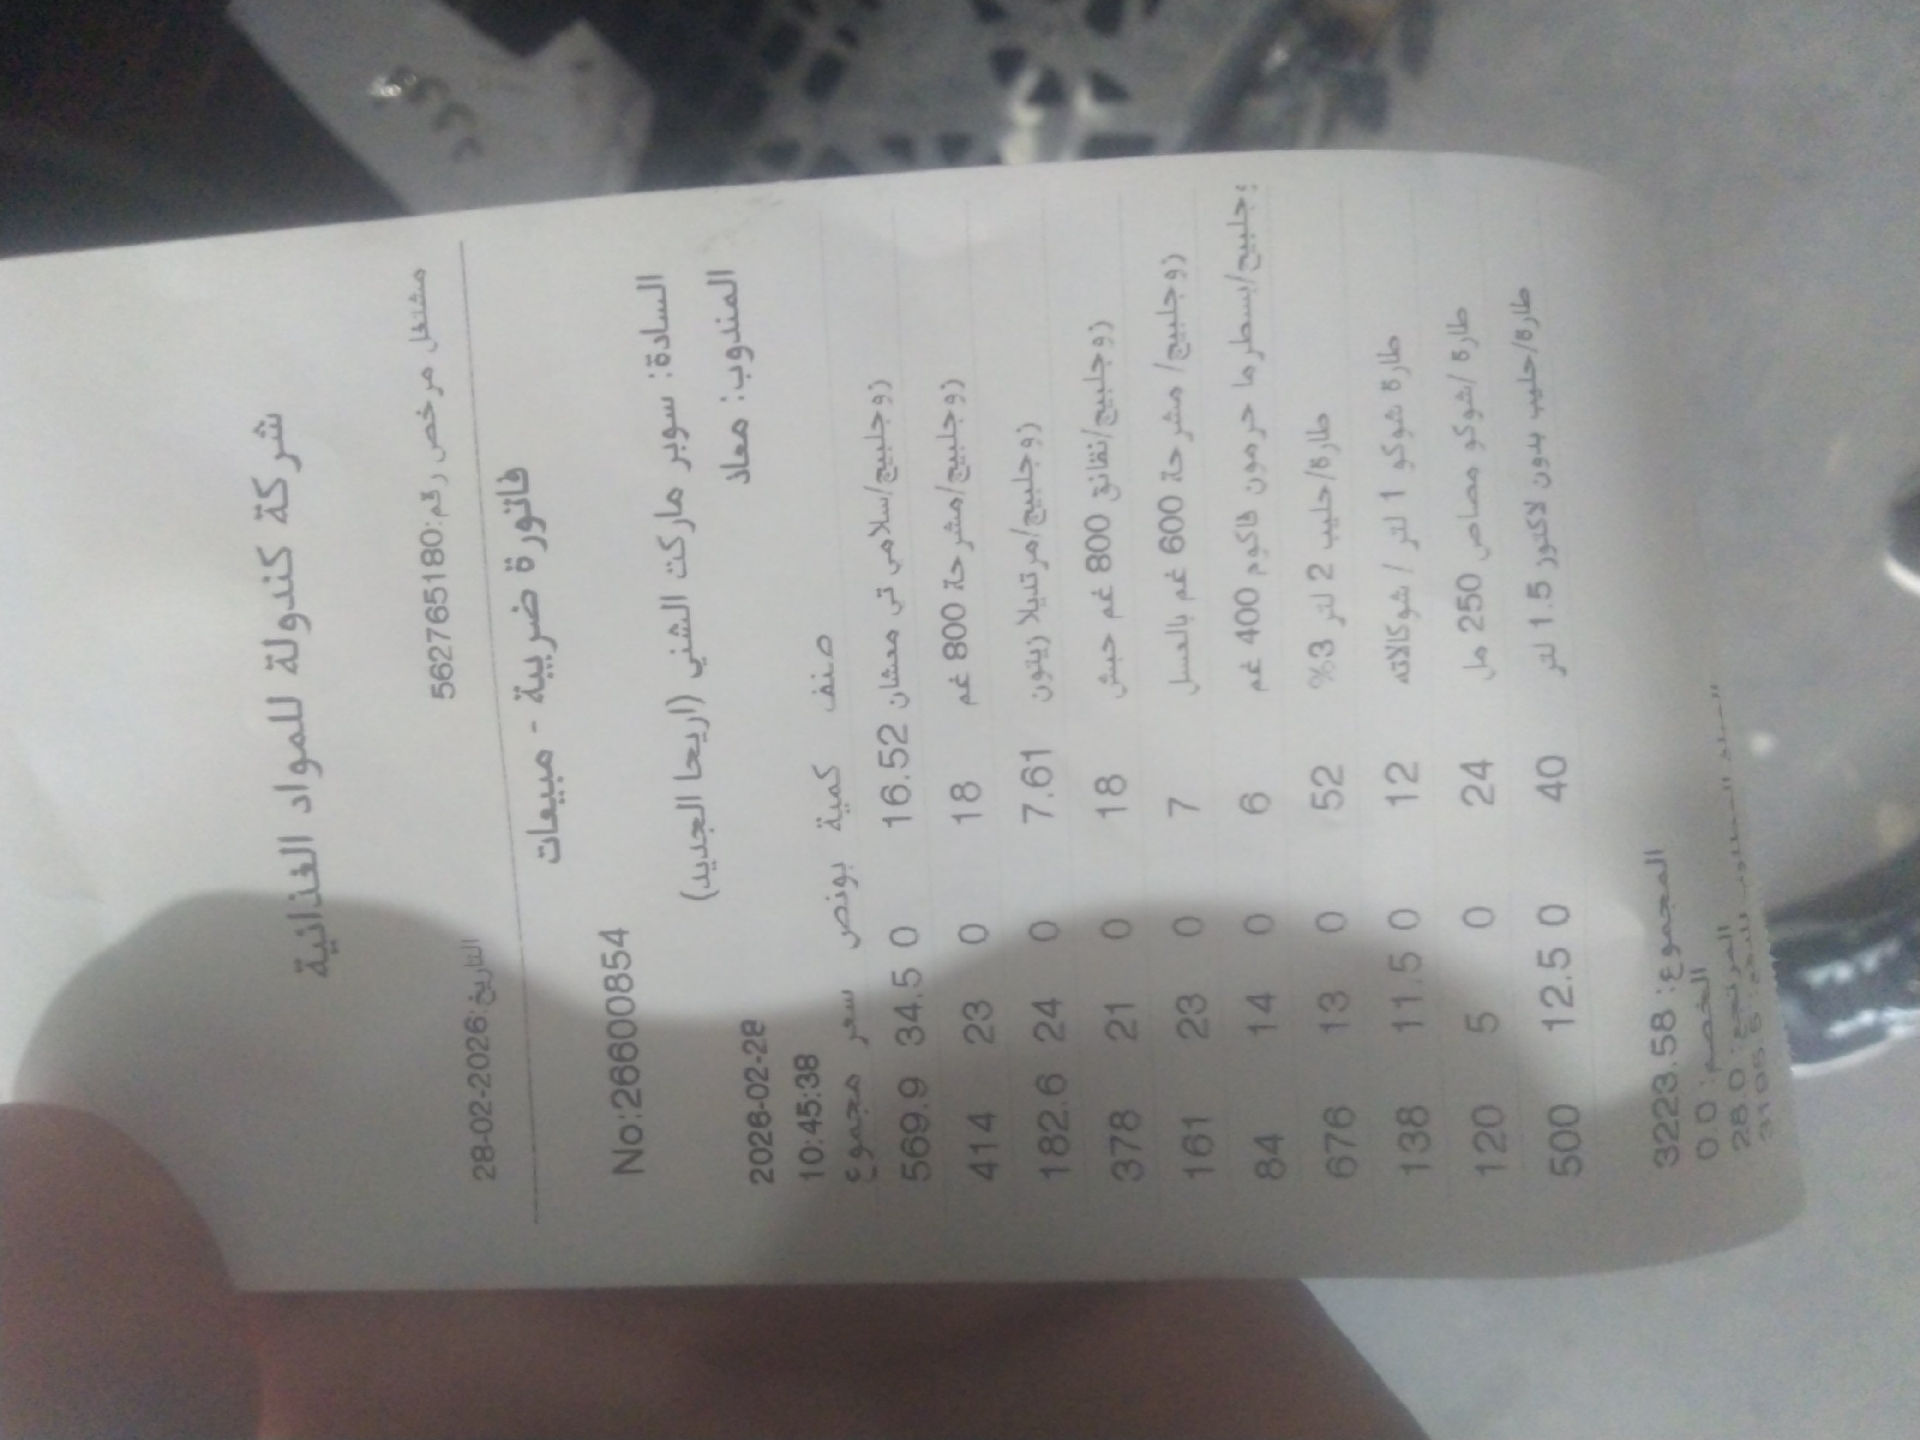 شركة كندولة للمواد الغذائية
مشتغل مرخص رقم:562765180
التاريخ:2026-02-28
فاتورة ضريبية - مبيعات
No:26600854
السادة: سوبر ماركت الشني (اريحا الجديد)
المندوب: معاذ
2026-02-28
10:45:38
صنف كمية بونص سعر مجموع
(وجليبيج/سلامي تي معشان 16.52 0 34.5 569.9
(وجليبيج/مشرحة 800 غم 18 0 23 414
(وجليبيج/مرتديلا زيتون 7.61 0 24 182.6
(وجليبيج/نقانق 800 غم حبش 18 0 21 378
(وجليبيج/ مشرحة 600 غم بالعسل 7 0 23 161
وجليبيج/بسطرما حرمون فاكوم 400 غم 6 0 14 84
طارة/حليب 2 لتر 3% 52 0 13 676
طارة شوكو 1 لتر / شوكالاته 12 0 11.5 138
طارة /شوكو مصاص 250 مل 24 0 5 120
طارة/حليب بدون لاكتوز 1.5 لتر 40 0 12.5 500
المجموع: 3223.58
الخصم: 0.0
المرتجع: 28.0